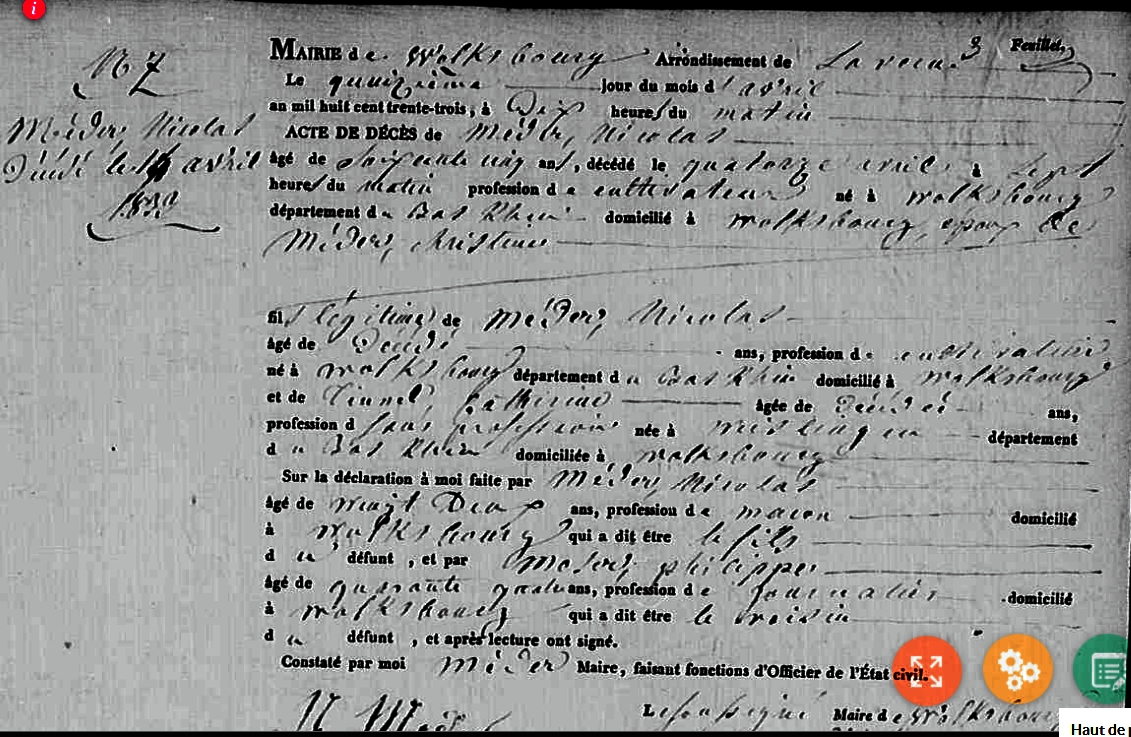 3 Feuillet,
MAIRIE de Wolksbourg Arrondissement de
Le quinzième jour du mois d'avril
an mil huit cent trente-trois, à Dix heures du matin
N 7
Méder, Nicolas
Décédé le 14 avril
1833
ACTE DE DÉCÈS de Méder, Nicolas
âgé de soixante ans, décédé le quatorze avril à sept
heures du matin profession de cultivateur né à wolksbourg
département du Bas Rhin domicilié à wolksbourg, epoux de
Méder, christine
fils légitime de Méder, Nicolas
âgé de Décédé ans, profession de cultivateur
né à wolksbourg département du Bas Rhin domicilié à wolksbourg
et de Catherine âgée de Décédée ans,
profession d sans profession née à département
du Bas Rhin domiciliée à wolksbourg
Sur la déclaration à moi faite par Méder, Nicolas
âgé de vingt Deux ans, profession de macon domicilié
à wolksbourg qui a dit être le fils
du défunt, et par philippe
âgé de quarante quatre ans, profession de journalier domicilié
à wolksbourg qui a dit être le voisin
du défunt, et après lecture ont signé.
Constaté par moi Méder Maire, faisant fonctions d'Officier de l'État civil.
N Méder Le soussigné Maire de Wolksbourg
Haut de